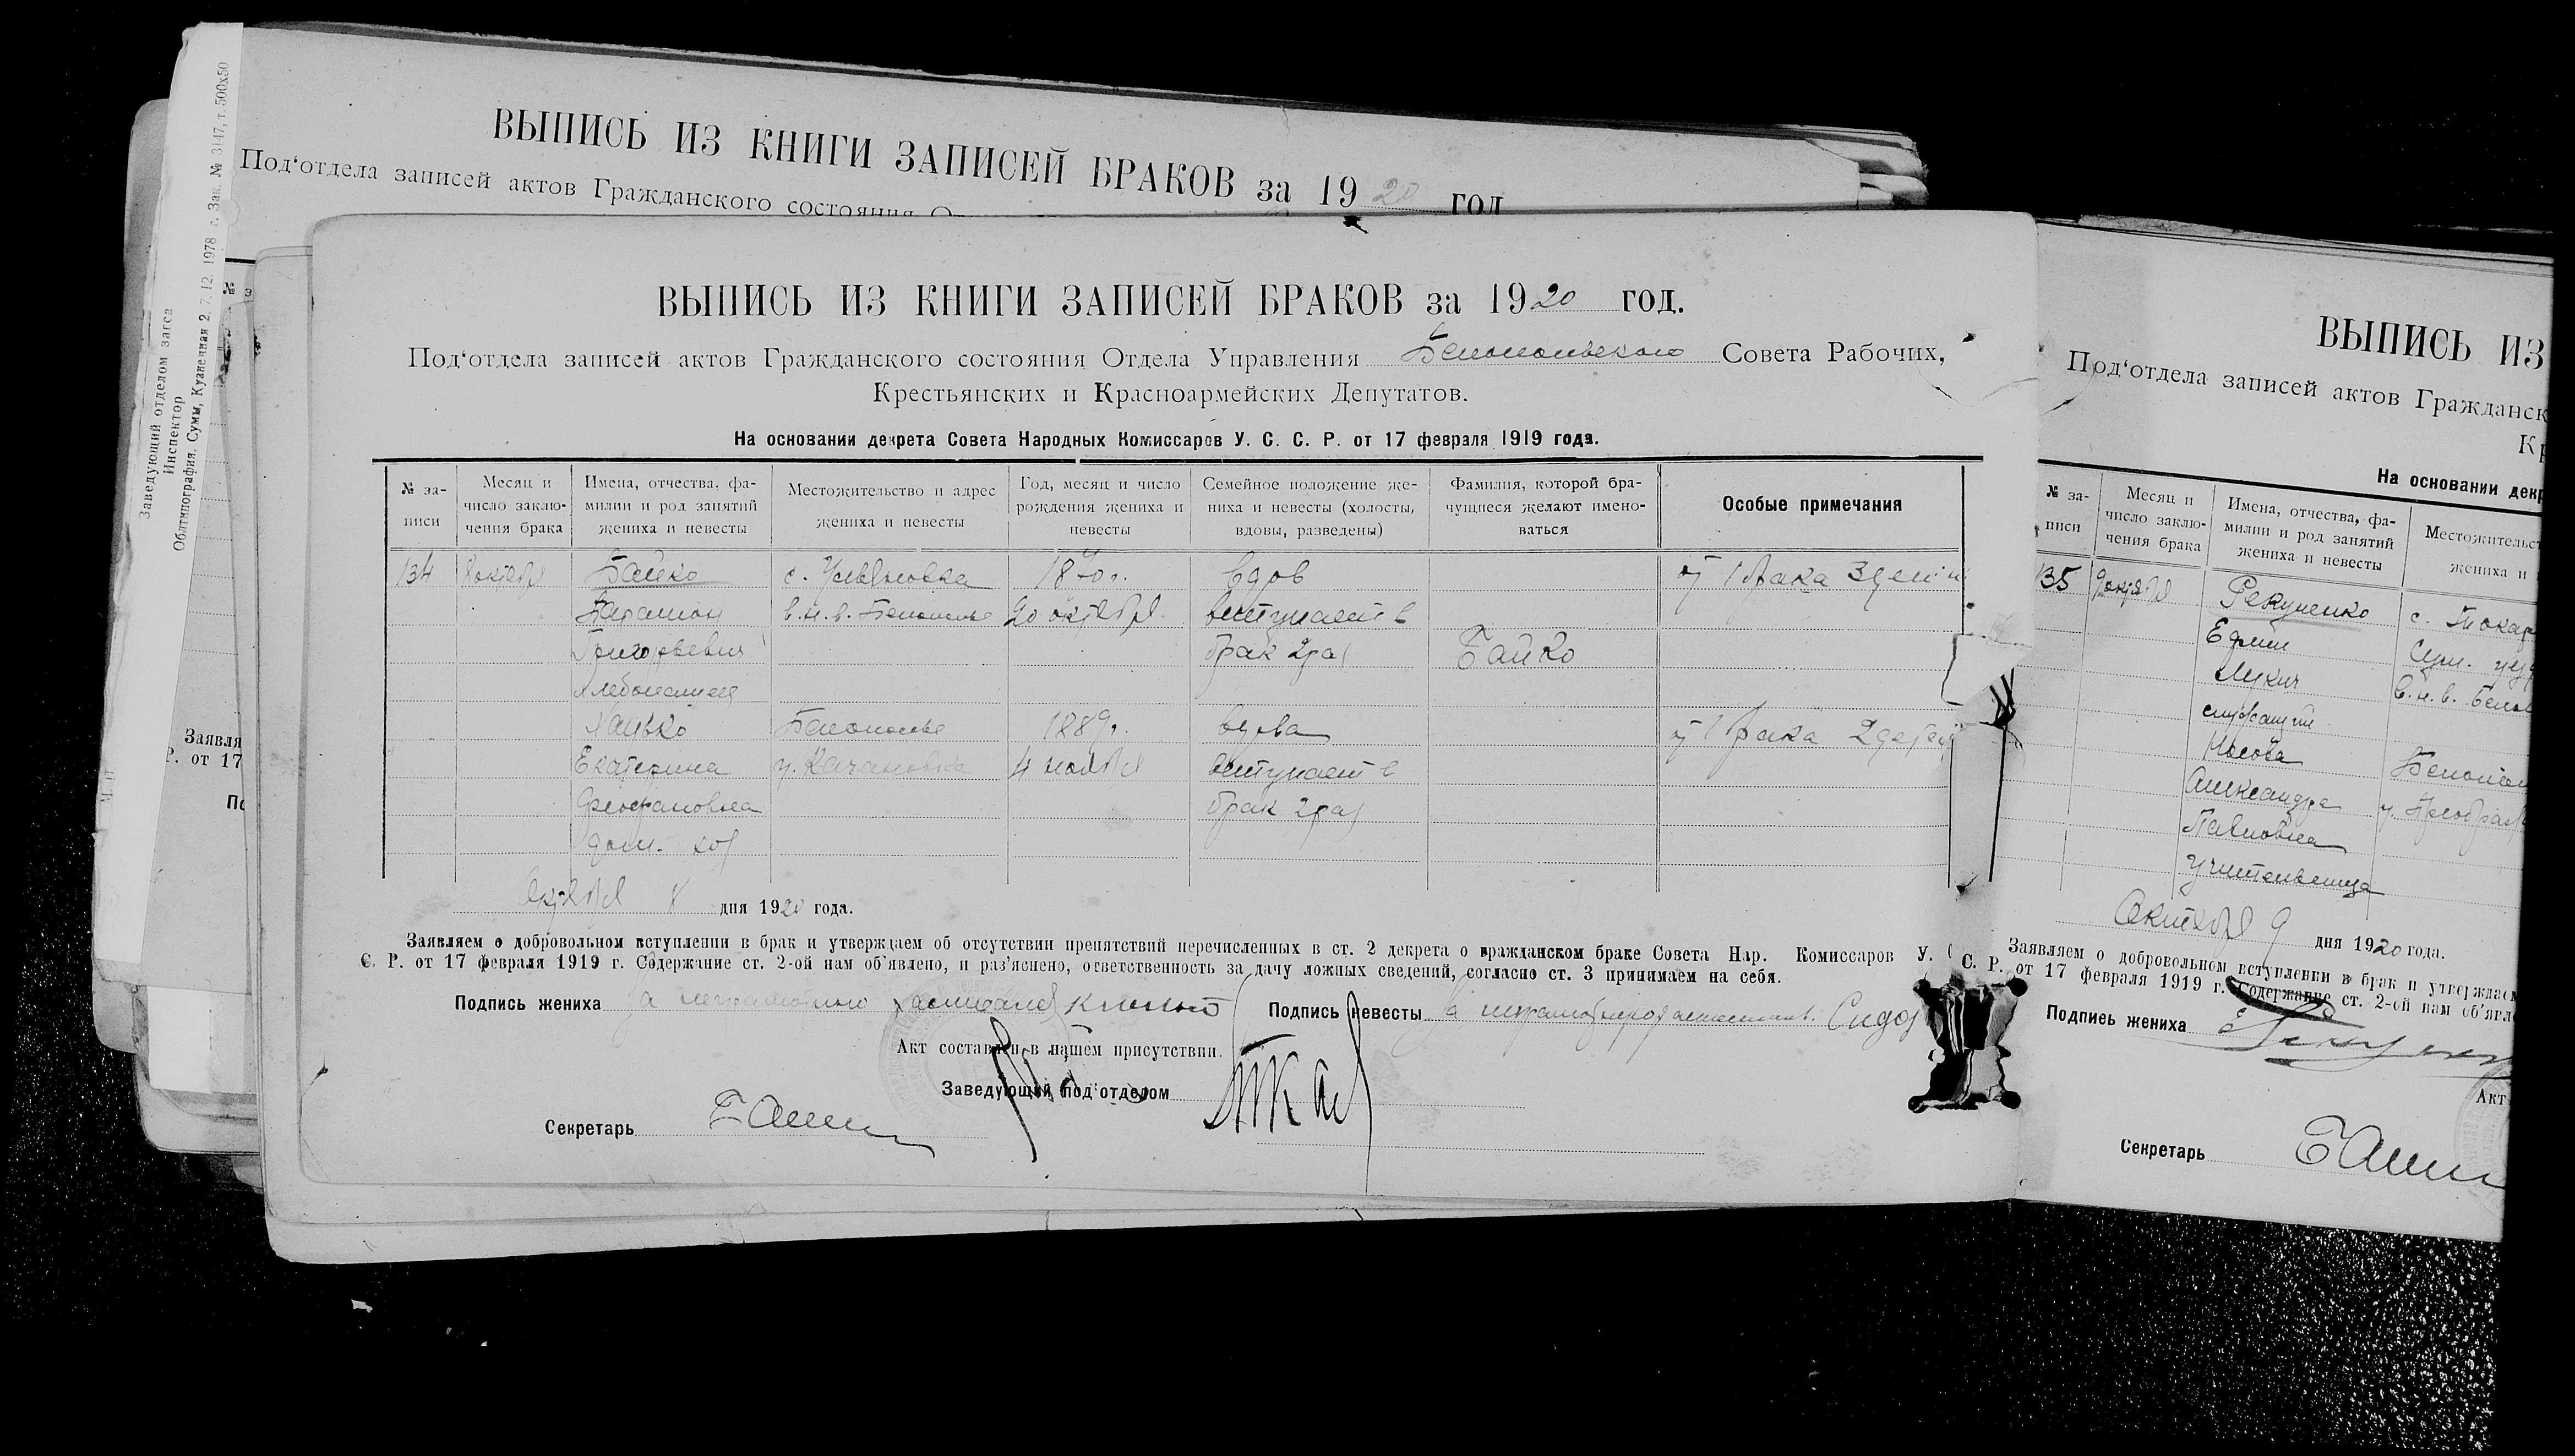 Заведующий отделом загса
Инспектор
Облтипография. Сумм, Кузнечная 2, 7. 12. 1978 г. Зак. № 3147, т. 500х50
ВЫПИСЬ ИЗ КНИГИ ЗАПИСЕЙ БРАКОВ за 1920 год
Под‘отдела записей актов Гражданского состояния
№ з
Заявля
Р. от 17
По
ВЫПИСЬ ИЗ КНИГИ ЗАПИСЕЙ БРАКОВ за 1920 год.
Под‘отдела записей актов Гражданского состояния Отдела Управления Белопольского Совета Рабочих,
Крестьянских и Красноармейских Депутатов.
На основании декрета Совета Народных Комиссаров У. С. С. Р. от 17 февраля 1919 года.
№ записи
Месяц и число заключения брака
Имена, отчества, фамилии и род занятий жениха и невесты
Местожительство и адрес жениха и невесты
Год, месяц и число рождения жениха и невесты
Семейное положение жениха и невесты (холосты, вдовы, разведены)
Фамилия, которой брачущиеся желают именоваться
Особые примечания
134 8 октября Байко с. Ульяновка 18 г. вдов от 1 брака 3 детей
Парамон в.н.в. Белополье 20 октября вступает в
Григорьевич брак 2 раз Байко
хлебопашец
Белополье 1889г. вдова от 1 брака 2 детей
Екатерина у. Качановка 4 ноября вступает в
Феофановна брак 2 раз
дом. хоз
Октября 8 дня 1920 года.
Заявляем о добровольном вступлении в брак и утверждаем об отсутствии препятствий перечисленных в ст. 2 декрета о гражданском браке Совета Нар. Комиссаров У.
С. Р. от 17 февраля 1919 г. Содержание ст. 2-ой нам об‘явлено, и раз‘яснено, ответственность за дачу ложных сведений, согласно ст. 3 принимаем на себя.
Подпись жениха за неграмотного расписался
Подпись невесты
Акт составлен в нашем присутствии.
Заведующий под‘отделом
Секретарь
ВЫПИСЬ ИЗ
Под‘отдела записей актов Гражданск
Кр
На основании декр
№ записи
Месяц и число заключения брака
Имена, отчества, фамилии и род занятий жениха и невесты
Местожительст
жениха и
135 9 октября Рекуненко с. Токар
Ефим Сум. уезд
Лукич в.н.в. Белоп
служащий
Носова Белопол
Александра у. Преображ
Павловна
учительница
Октября 9 дня 1920 года.
Заявляем о добровольном вступлении в брак и утверждаем
С. Р. от 17 февраля 1919 г. Содержание ст. 2-ой нам об‘явле
Подпись жениха
Акт
Секретарь